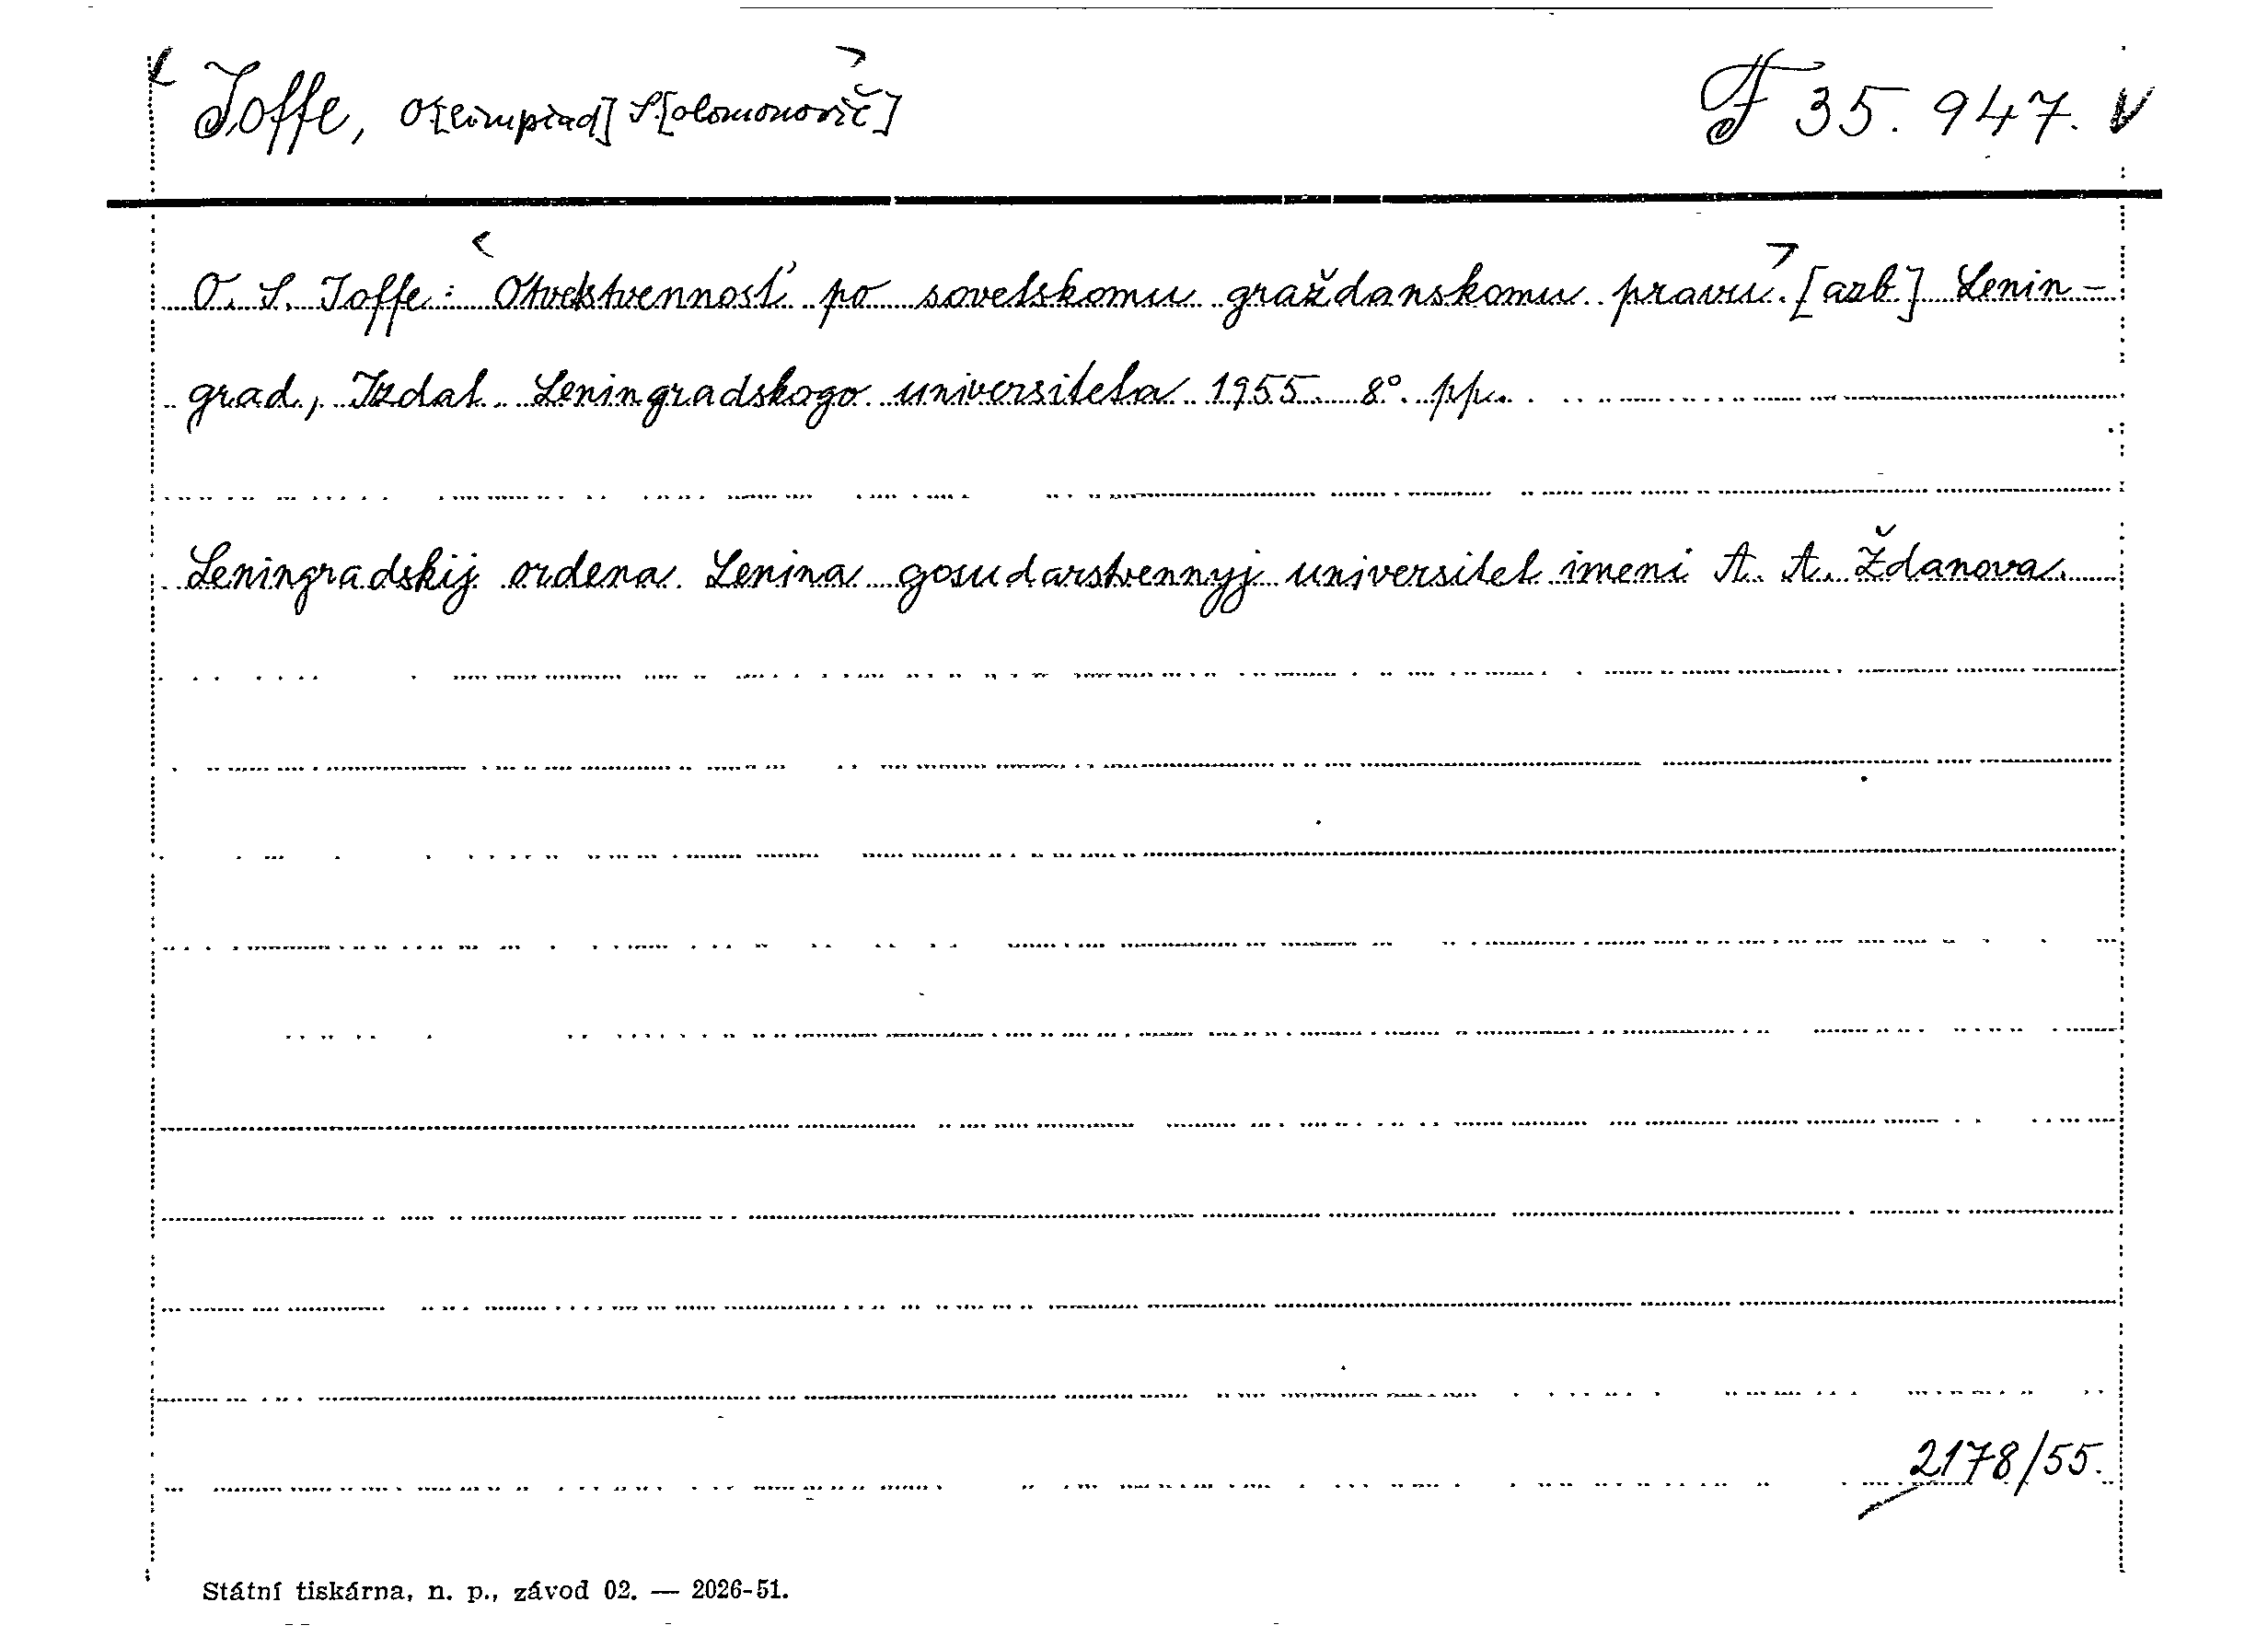 < Ioffe, O[limpiad] S[olomonovič] > F 35.947. V
O. S. Ioffe: < Otvetstvennosť po sovetskomu graždanskomu pravu. > [azb.] Lenin-
grad, Izdat. Leningradskogo universiteta 1955. 8°. pp.
Leningradskij ordena Lenina gosudarstvennyj universitet imeni A. A. Ždanova.
2178/55.
Státní tiskárna, n. p., závod 02. — 2026-51.